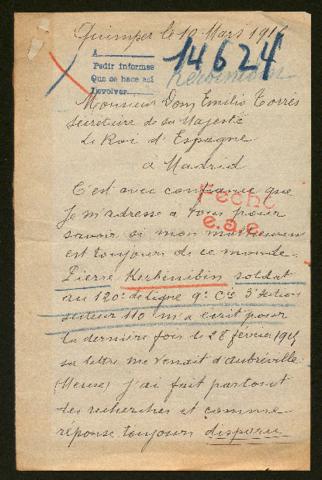 Quimper le 10 Mars 1916
A
Pedir informes
Que se hace así
Devolver
14624
Monsieur Dom Emilio Torrès
Secrétaire de sa Majesté
Le Roi d'Espagne
à Madrid
C'est avec confiance que
Je m'adresse a vous pour
savoir si mon malheureux
est toujours de ce monde.
Pierre Kerhinibin soldat
au 120e de ligne 9e Cie 3e Section
secteur 110 m'a écrit pour
la dernière fois le 28 février 1915
sa lettre me venait d'Aubréville
(Meuse) j'ai fait partout
des recherches et comme
réponse toujours disparu